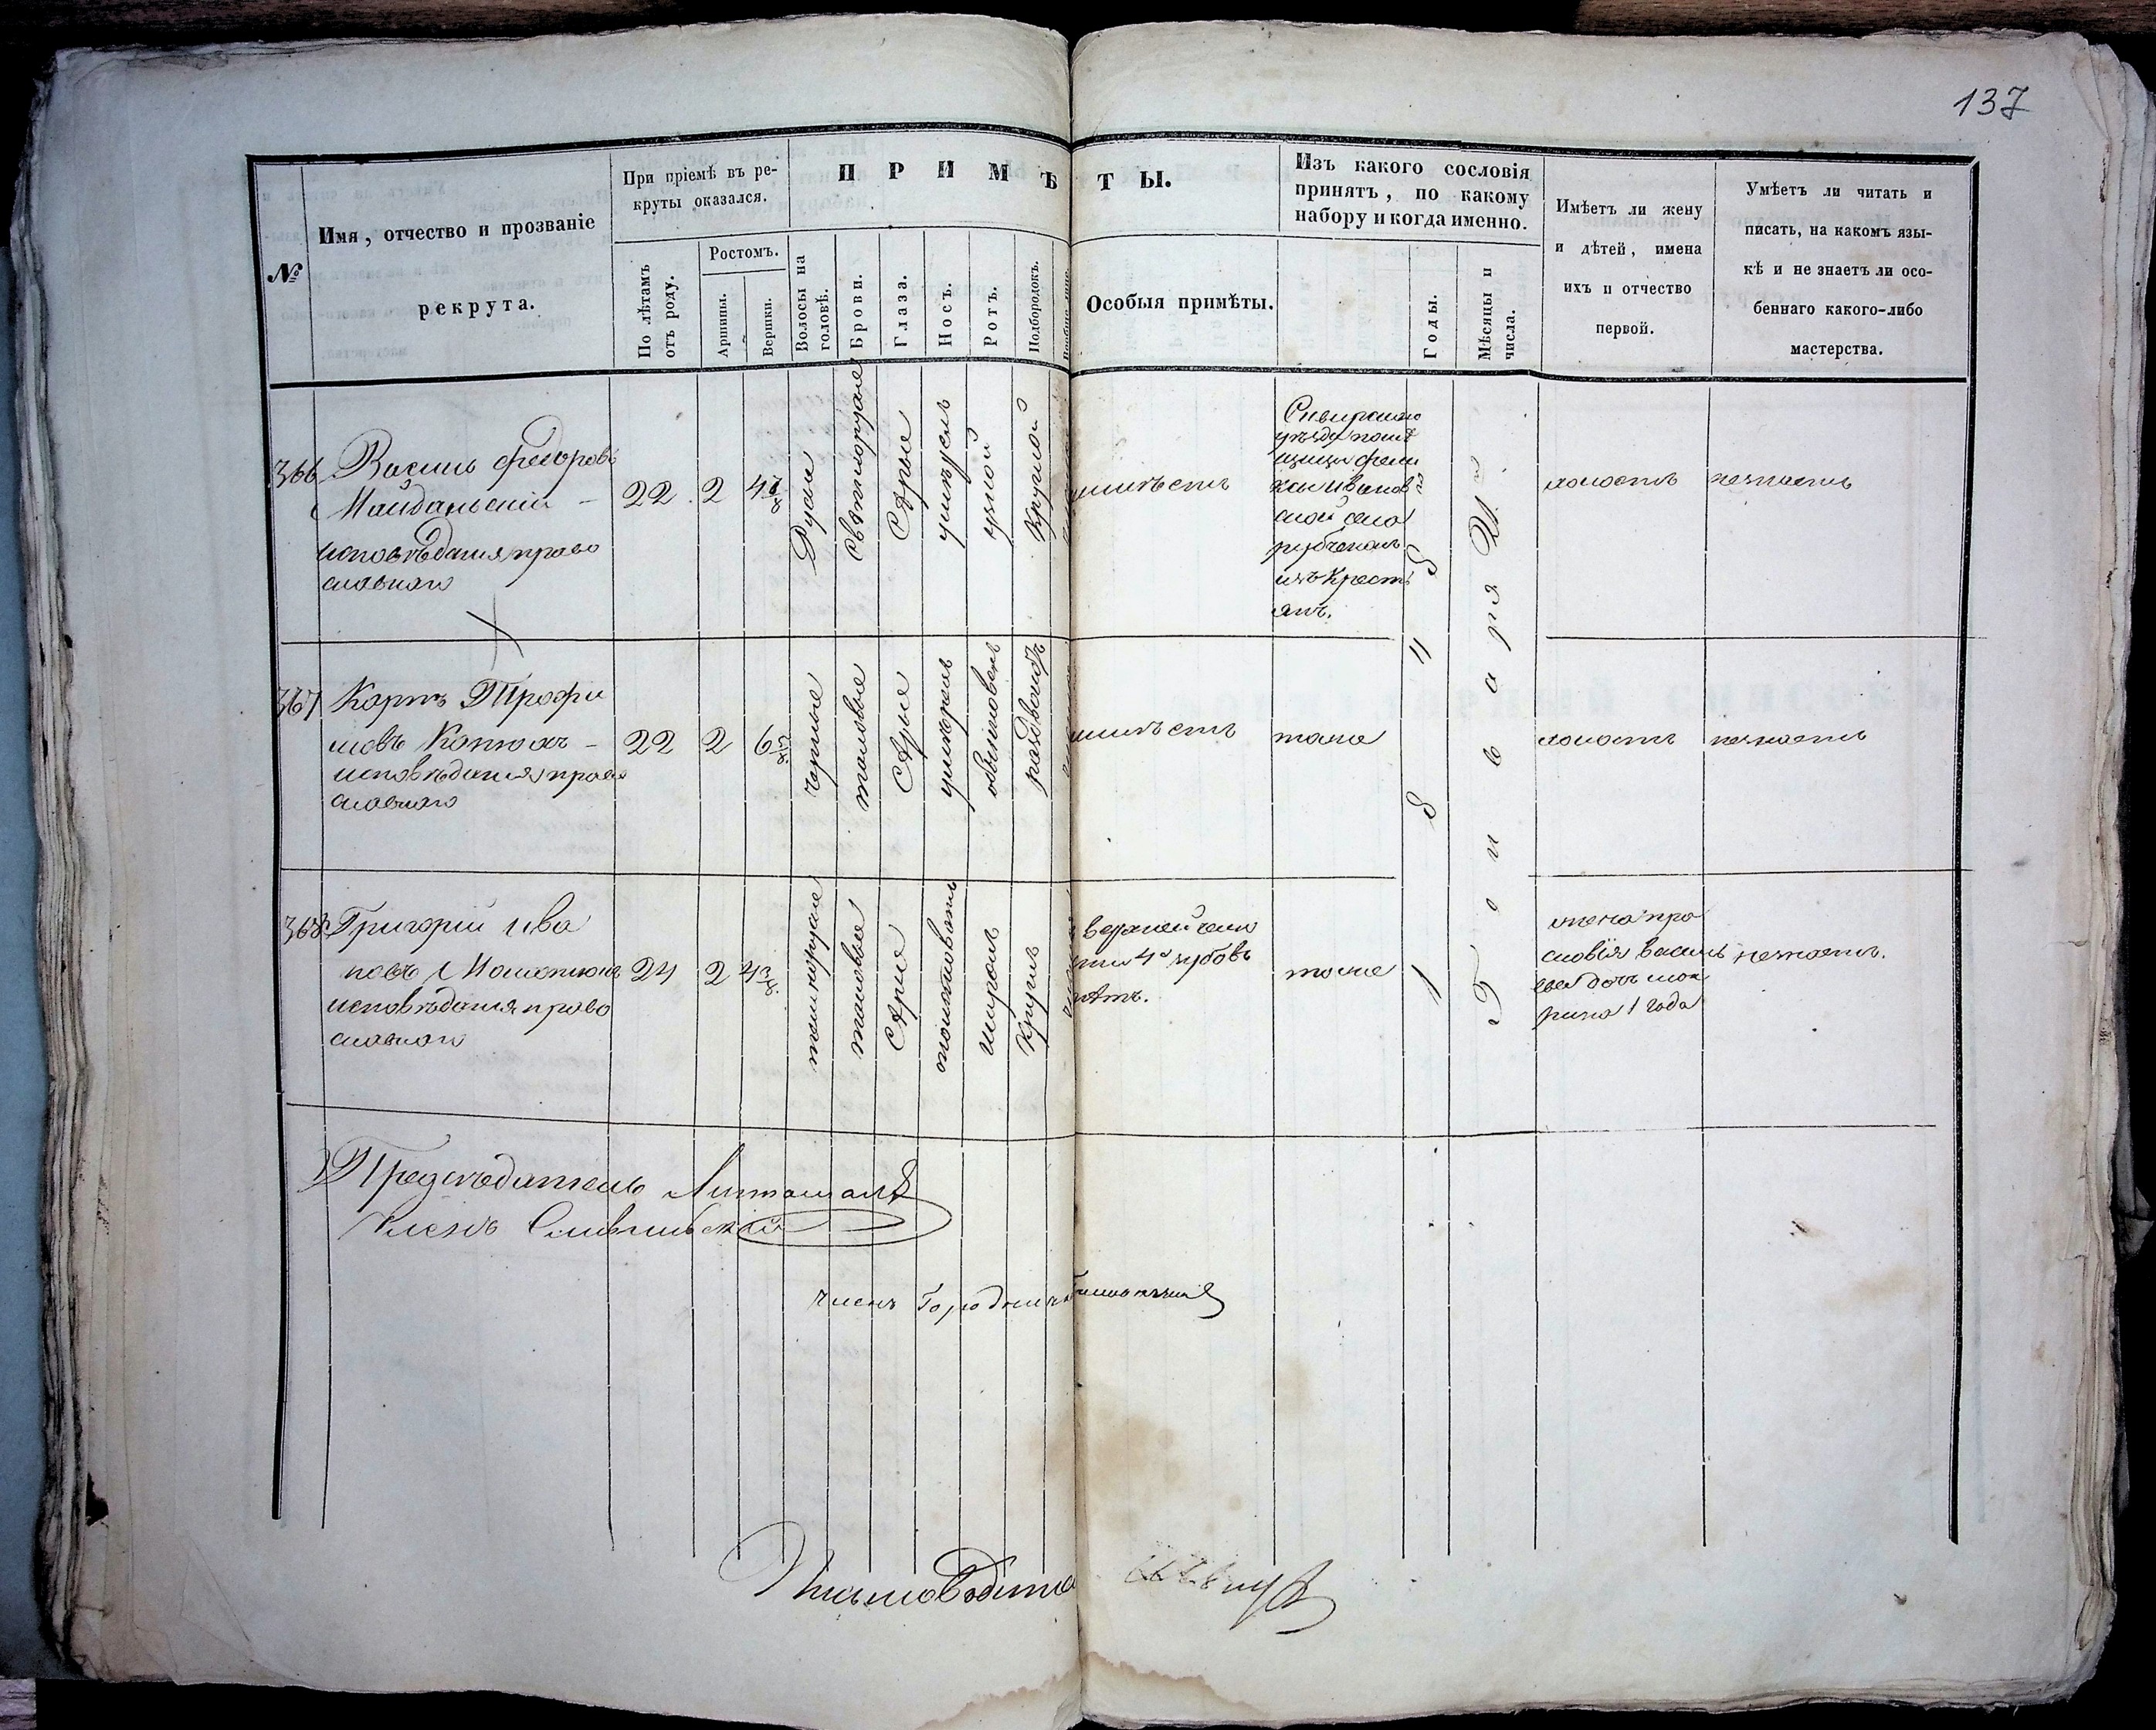 137
№
Имя, отчество и прозваніе
рекрута.
При пріемѣ въ ре-
круты оказался.
По лѣтамъ
отъ роду.
Ростомъ.
Аршины.
Вершки.
ПРИМѢТЫ.
Волосы на
головѣ.
Брови.
Глаза.
Носъ.
Ротъ.
Подбородокъ.
Особыя примѣты.
Изъ какого сословія
принятъ, по какому
набору и когда именно.
Годы.
Мѣсяцы и
числа.
Имѣетъ ли жену
и дѣтей, имена
ихъ и отчество
первой.
Умѣетъ ли читать и
писать, на какомъ язы-
кѣ и не знаетъ ли осо-
беннаго какого-либо
мастерства.
366
Василь Федоровъ
Майданскій
исповѣданія право
славнаго
22
2
Русые
свѣтлорусые
Сѣрые
умѣрен
узкой
Круглой
неимѣетъ
уѣзда помѣ
щицы
села
изъ Кресть
янъ.
холостъ
незнаетъ
1855
Января 21
367
Карпъ Трофи
мовъ
исповѣданія право
славнаго
22
2
черные
таковые
Сѣрые
умѣренъ
обыкновенъ
раздвоистъ
неимѣетъ
тоже
холостъ
незнаетъ
368
Григорій Ива
новъ
исповѣданія право
славнаго
24
2
темнорусые
таковые
Сѣрые
толстоватъ
широкъ
Круглъ
верхней челю
сти 4х зубовъ
нѣтъ.
тоже
жена Пра
сковія Василь
ева дочь Ма
рина 1 года
незнаетъ.
Предсѣдатель
Членъ
членъ Городничій
Письмоводитель